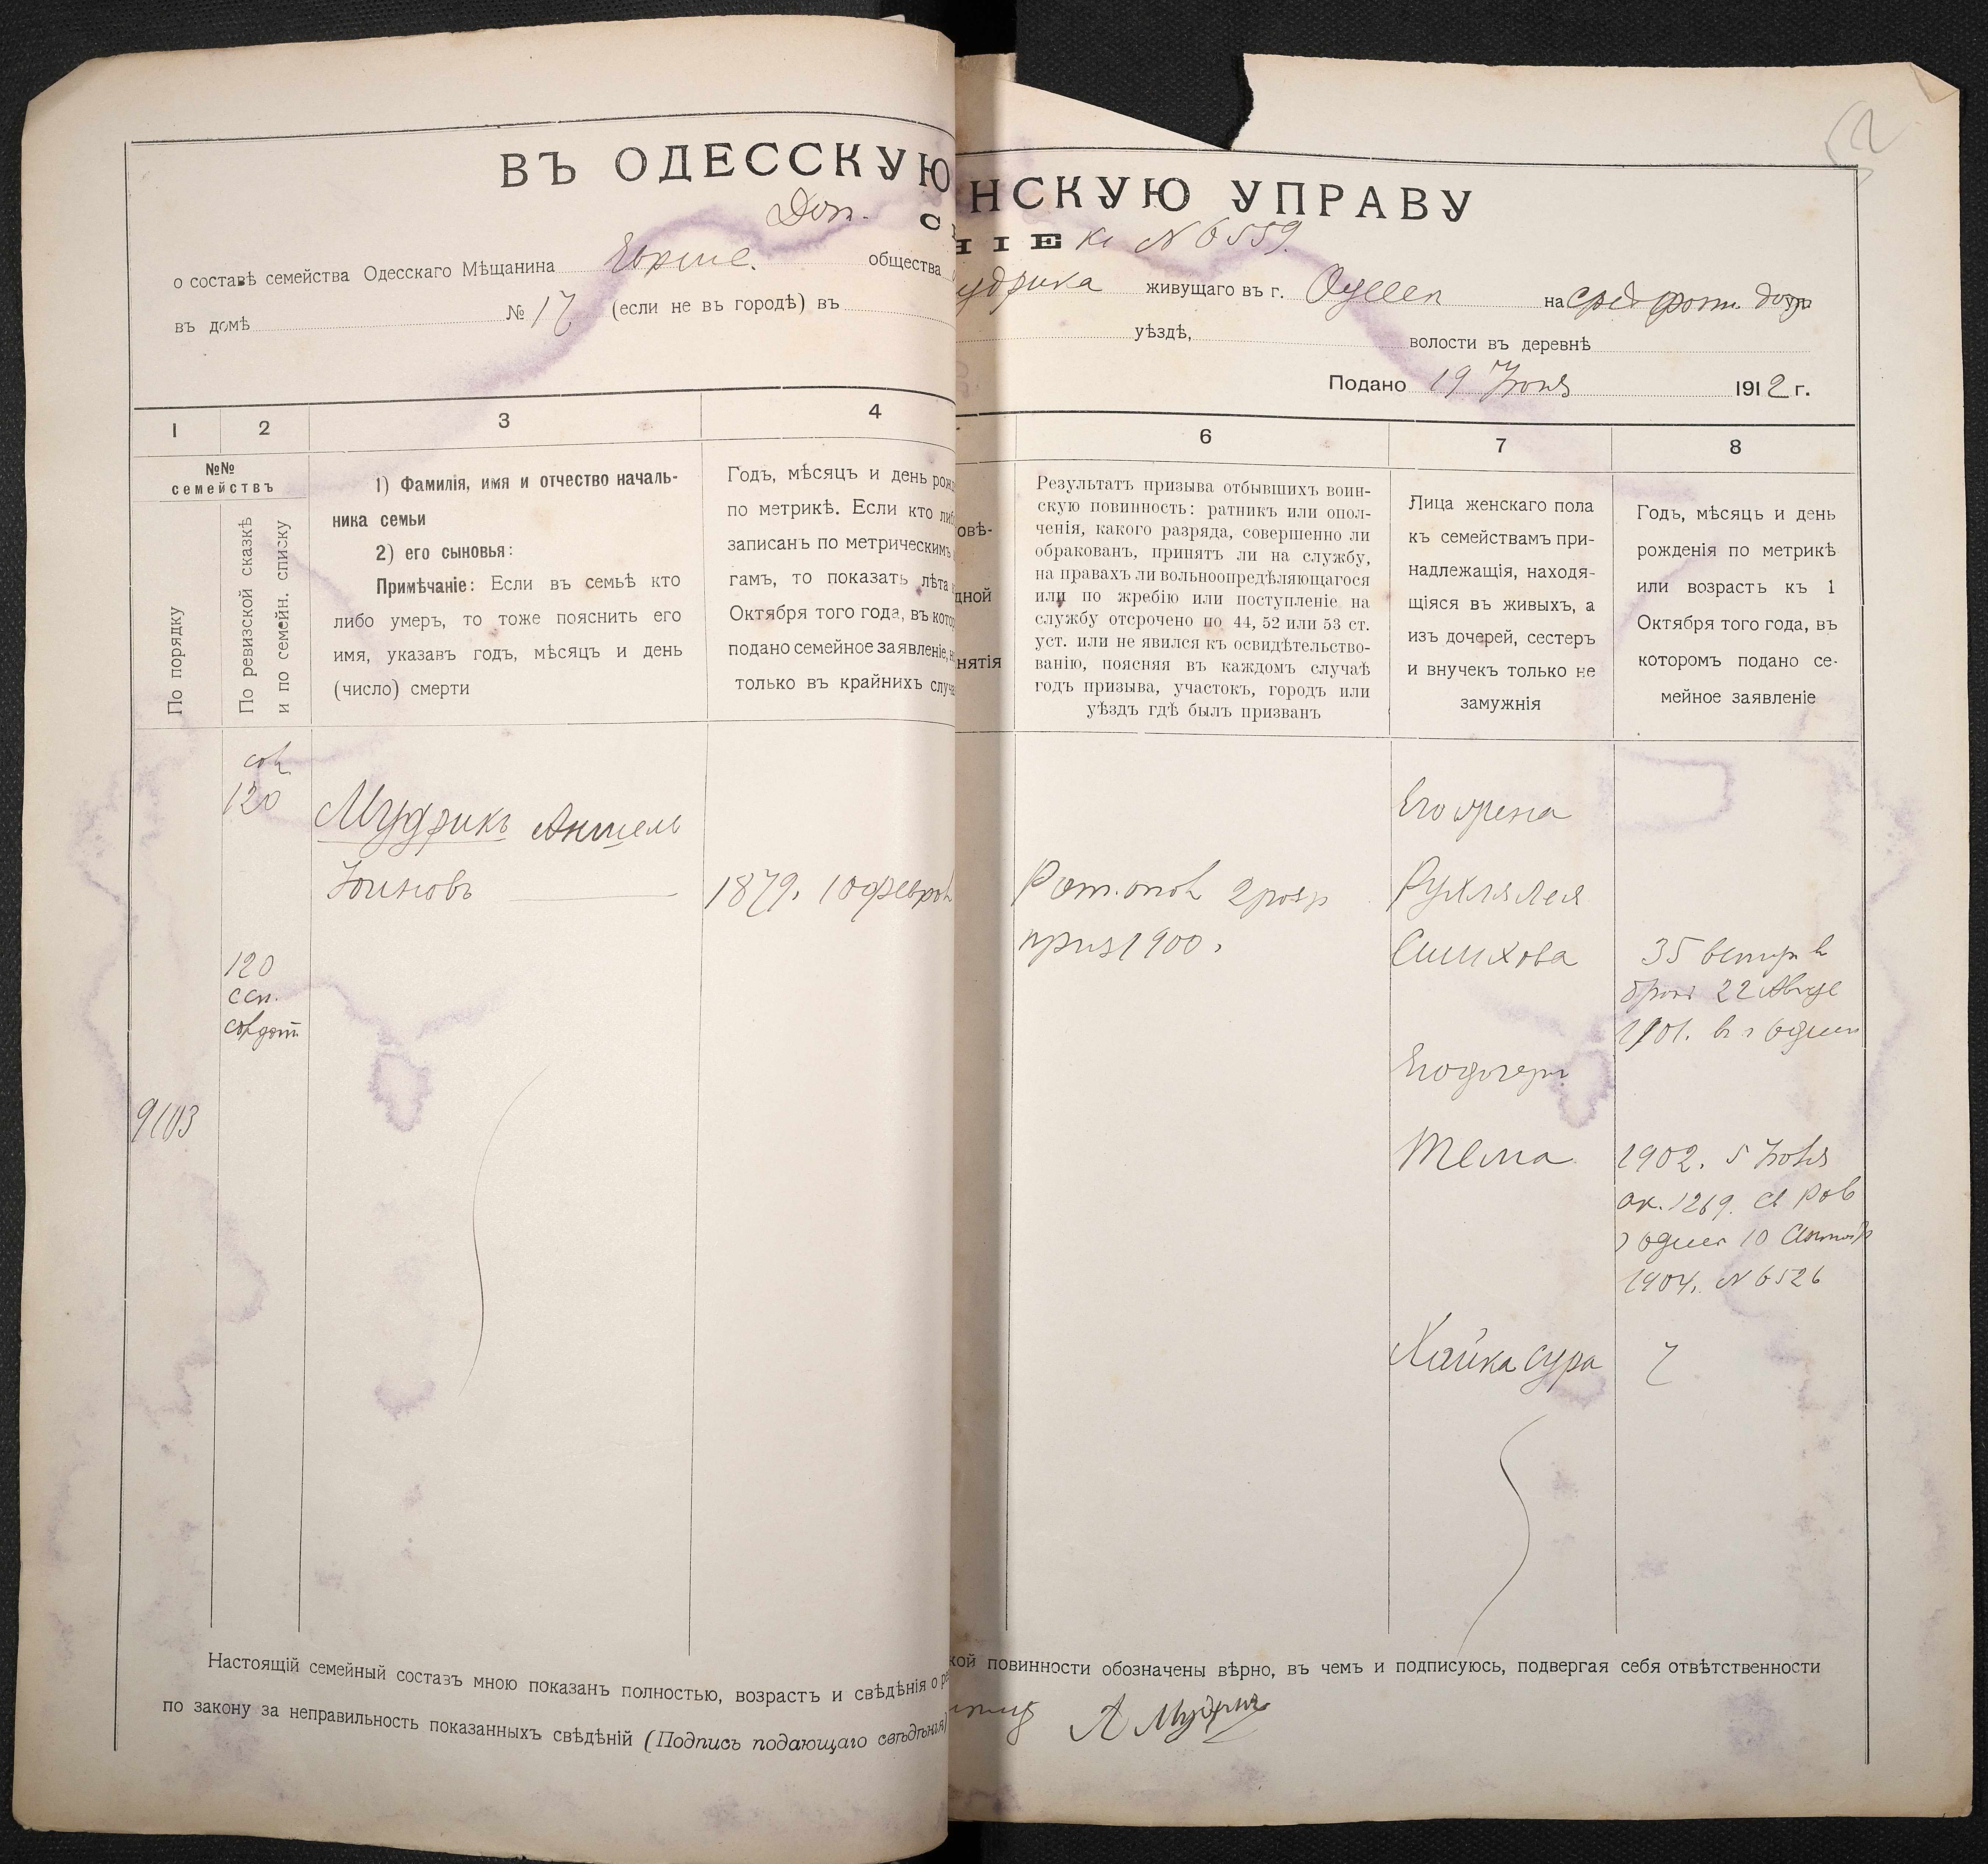 52
ВЪ ОДЕССКУЮ
НСКУЮ УПРАВУ
Доп.
НІЕ къ № 6559.
о составѣ семейства Одесскаго Мѣщанина Еврие. общества
удрика живущаго въ г. Одессѣ на
въ домѣ № 17 (если не въ городѣ) въ
уѣздѣ, волости въ деревнѣ
Подано 19 Іюня 1912 г.
1 2 3 4
6 7 8
№№ семействъ
По порядку
По ревизской сказкѣ и по семейн. списку
1) Фамилія, имя и отчество началь-
ника семьи
2) его сыновья:
Примѣчаніе: Если въ семьѣ кто
либо умеръ, то тоже пояснить его
имя, указавъ годъ, мѣсяцъ и день
(число) смерти
Годъ, мѣсяцъ и день рож
по метрикѣ. Если кто либ
записанъ по метрическимъ
гамъ, то показать лѣта
Октября того года, въ кото
подано семейное заявленіе,
только въ крайнихъ случа
овѣ-
дной
нятія
Результатъ призыва отбывшихъ воин-
скую повинность: ратникъ или опол-
ченія, какого разряда, совершенно ли
обракованъ, принятъ ли на службу,
на правахъ ли вольноопредѣляющагося
или по жребію или поступленіе на
службу отсрочено по 44, 52 или 53 ст.
уст. или не явился къ освидѣтельство-
ванію, поясняя въ каждомъ случаѣ
годъ призыва, участокъ, городъ или
уѣздъ гдѣ былъ призванъ
Лица женскаго пола
къ семействамъ при-
надлежащія, находя-
щіяся въ живыхъ, а
изъ дочерей, сестеръ
и внучекъ только не
замужнія
Годъ, мѣсяцъ и день
рожденія по метрикѣ
или возрасть къ 1
Октября того года, въ
которомъ подано се-
мейное заявленіе
120
Мудрикъ Аншель
Іоиновъ
1879. 10 феврал
120
9103
Рат. опол 2 разр
приз 1900.
Его жена
Рухля Лея
Симхова
35
22 Авгус
1901.
Его дочери
Тема
1902. 5 Іюля
ак. 1269. св Рав
г Одессы 10
1904. № 6526
Хайка Сура
7
Настоящій семейный составъ мною показанъ полностью, возрастъ и свѣдѣнія о р
кой повинности обозначены вѣрно, въ чемъ и подписуюсь, подвергая себя отвѣтственности
по закону за неправильность показанныхъ свѣдѣній (Подпись подающаго свѣдѣнія)
А Мудрикъ